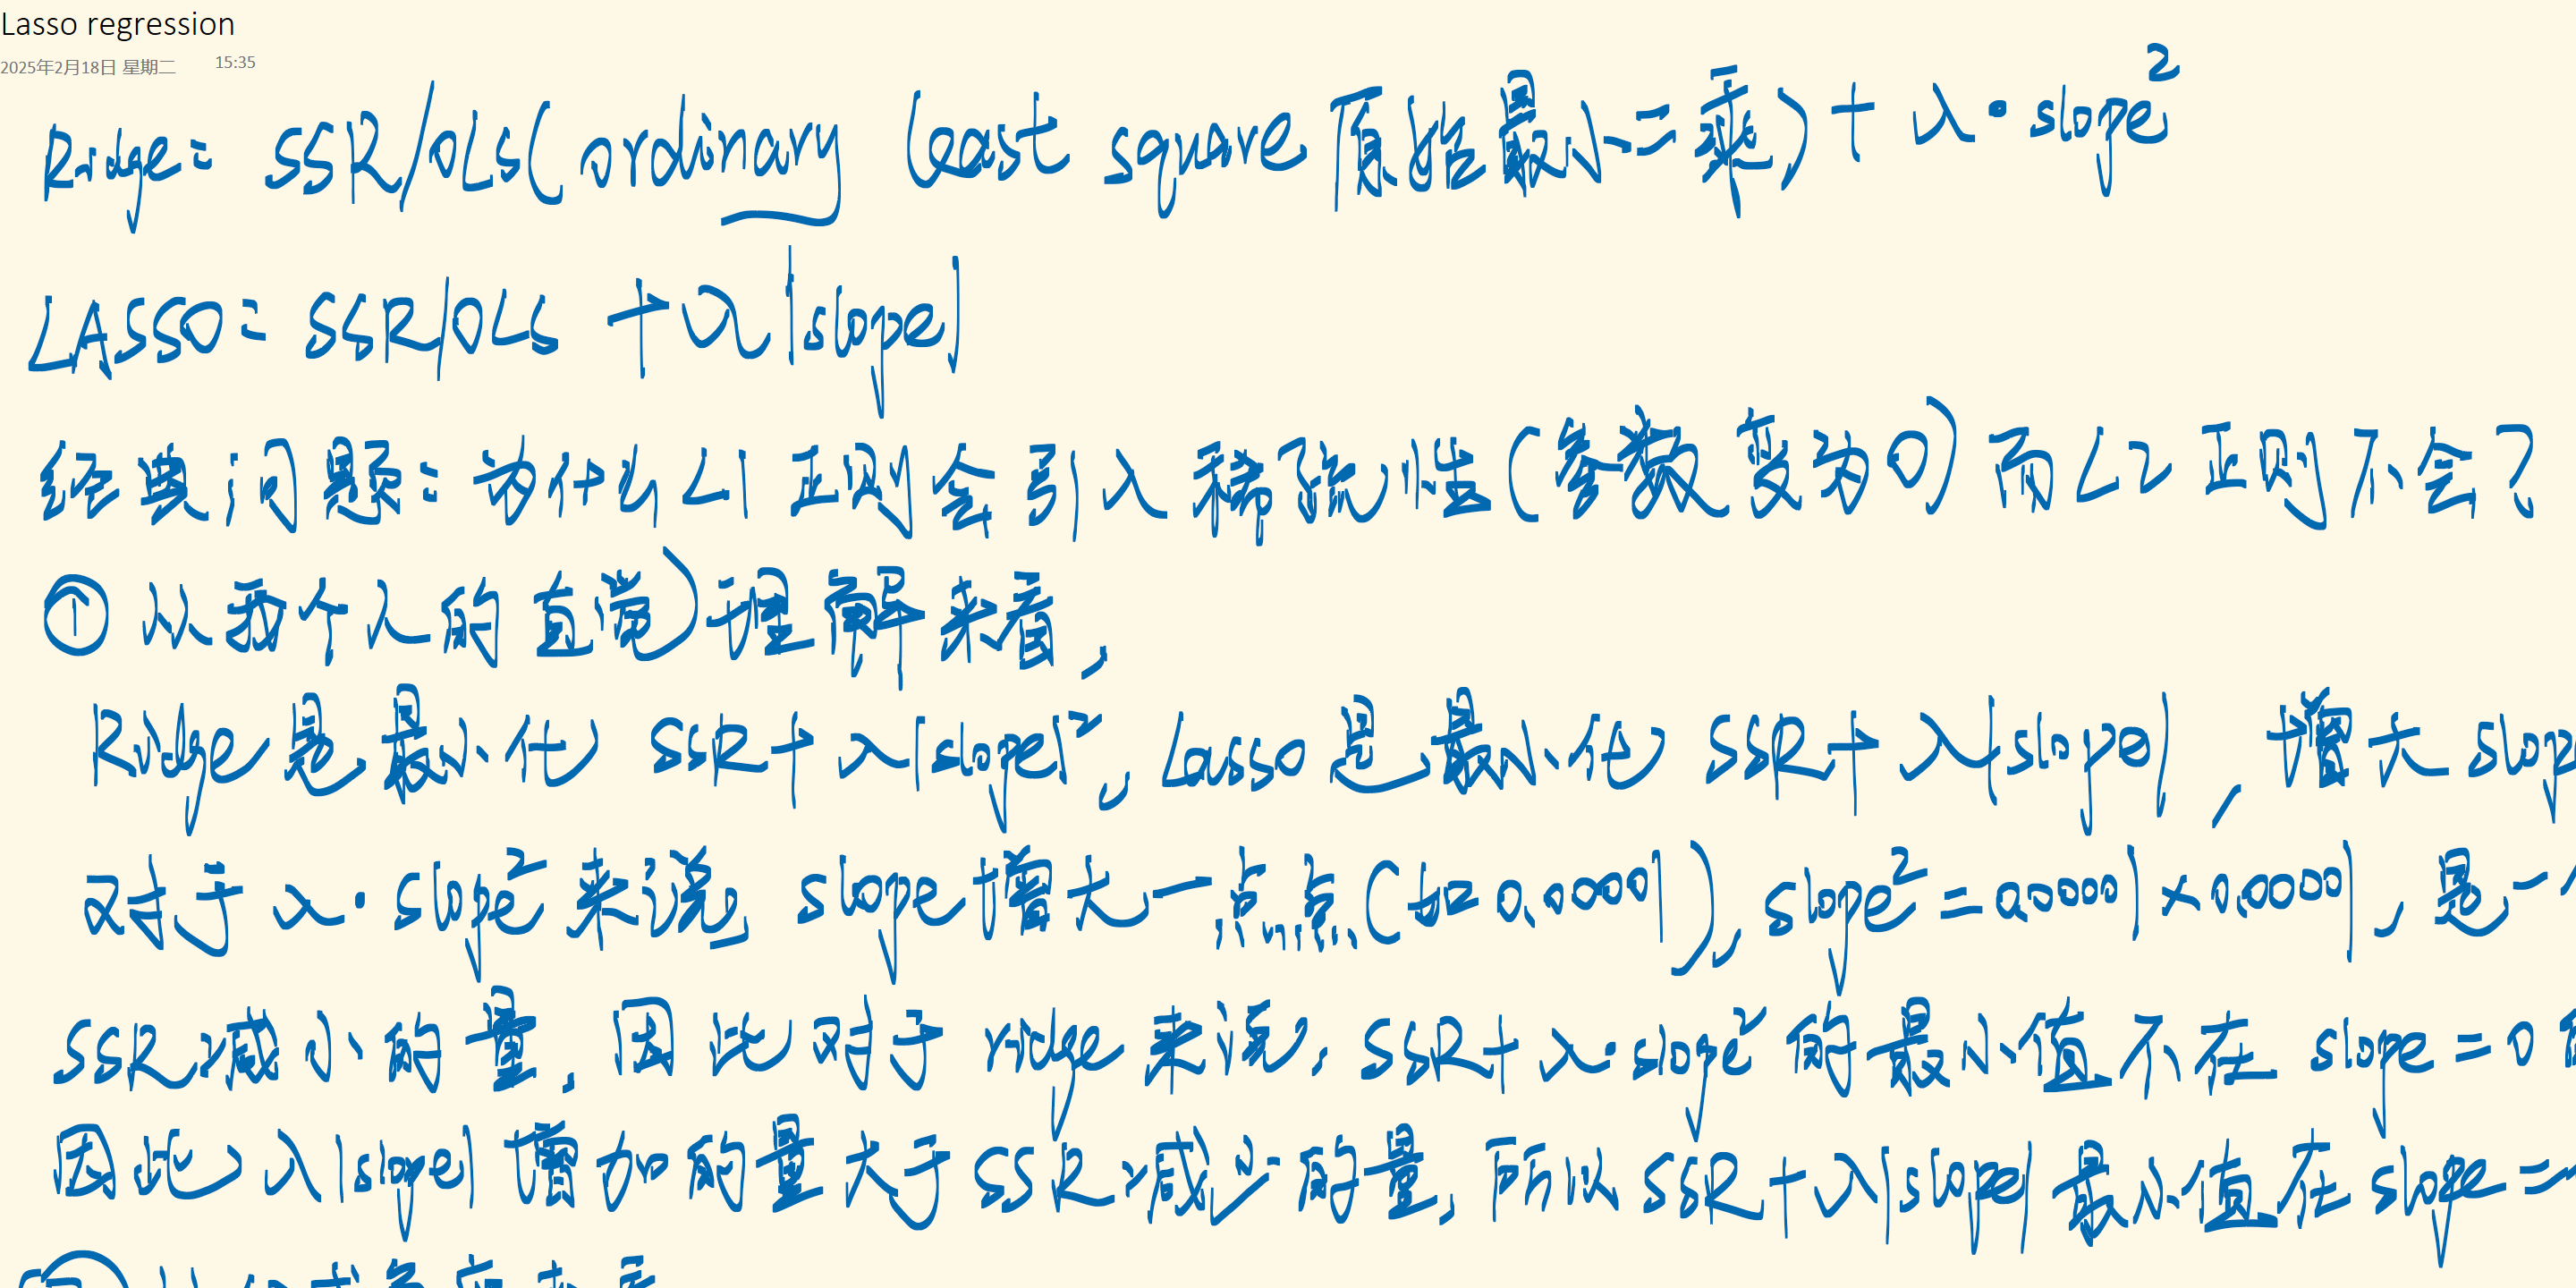 Lasso regression
2025年2月18日 星期二 15:35
Ridge = SSR/OLS(ordinary least square 原始最小二乘) + λ·slope²
LASSO = SSR/OLS + λ|slope|
经典问题：为什么L1正则会引入稀疏性(参数变为0)而L2正则不会?
① 从我个人的直觉理解来看，
Ridge是最小化 SSR+λ|slope|², Lasso是最小化 SSR+λ|slope|, 增大slop
对于λ·slope²来说, slope增大一点点(如0.00001), slope²=0.00001×0.00001, 是一个
SSR减小的量. 因此对于ridge来说, SSR+λ·slope²的最小值不在slope=0
因此λ|slope|增加的量大于SSR减少的量, 所以SSR+λ|slope|最小值在slope=